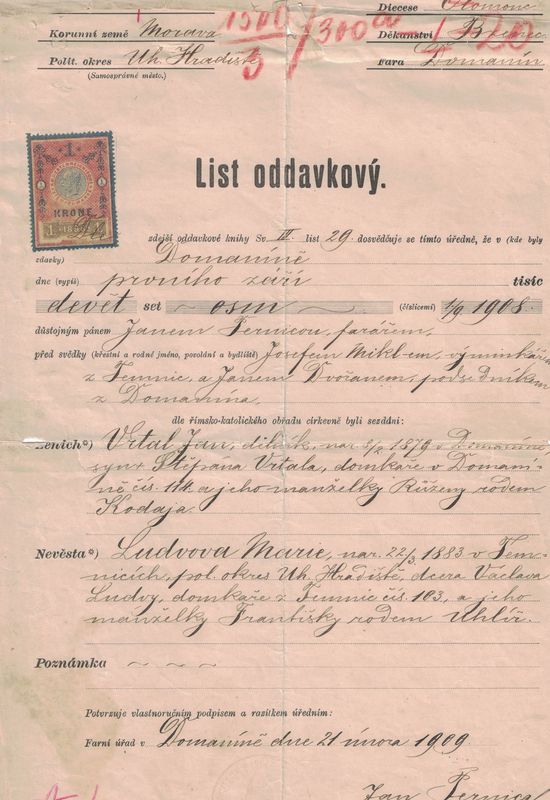 Diecese Olomouc
Korunní země Morava
1500
5
3000
20
Děkanství
Polit. okres Uh. Hradiště
Fara Domanín
(Samosprávné město.)
1
KRONE
1 1898
List oddavkový.
zdejší oddavkové knihy Sv. III list 29 dosvědčuje se tímto úředně, že v (kde byly
zdavky) Domaníně
dne (vypiš) prvního září tisíc
devět set osm (číslicemi) 1/9 1908.
důstojným pánem Janem Pernicou, farářem,
před svědky (křestní a rodné jméno, povolání a bydliště) Josefem Mikl-em, výminkářem
z Temnic, a Janem Dvořanem, podsedníkem
z Domanína.
dle římsko-katolického obřadu církevně byli sezdáni:
Ženich*) Vrtal Jan, dělník, nar. 1879 v Domaníně,
syn Štěpana Vrtala, domkáře v Domaní-
ně čís. 174. a jeho manželky Růženy rodem
Kodaja.
Nevěsta*) Ludvova Marie, nar. 22/3 1883 v Tem-
nicích, pol. okres Uh. Hradiště, dcera Václava
Ludvy, domkáře z Temnic čís. 103, a jeho
manželky Františky rodem Uhlíř.
Poznámka
Potvrzuje vlastnoručním podpisem a razítkem úředním:
Farní úřad v Domaníně dne 21 února 1909.
Jan Pernica